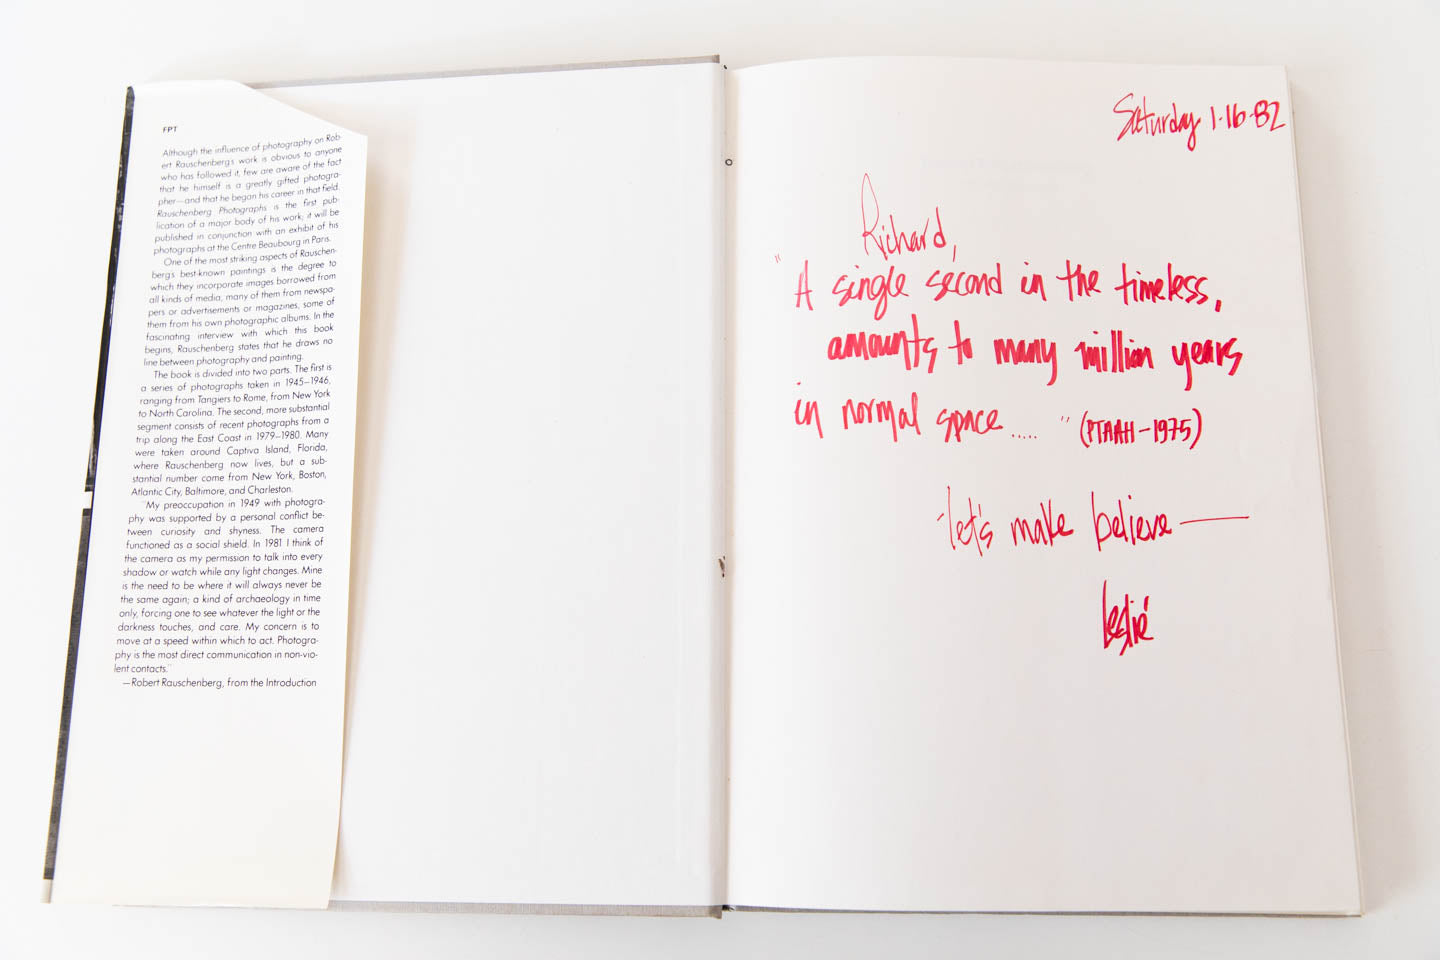 FPT
Although the influence of photography on Rob-
ert Rauschenberg's work is obvious to anyone
who has followed it, few are aware of the fact
that he himself is a greatly gifted photogra-
pher—and that he began his career in that field.
Rauschenberg Photographs is the first pub-
lication of a major body of his work; it will be
published in conjunction with an exhibit of his
photographs at the Centre Beaubourg in Paris.
One of the most striking aspects of Rauschen-
berg's best-known paintings is the degree to
which they incorporate images borrowed from
all kinds of media, many of them from newspa-
pers or advertisements or magazines, some of
them from his own photographic albums. In the
fascinating interview with which this book
begins, Rauschenberg states that he draws no
line between photography and painting.
The book is divided into two parts. The first is
a series of photographs taken in 1945–1946,
ranging from Tangiers to Rome, from New York
to North Carolina. The second, more substantial
segment consists of recent photographs from a
trip along the East Coast in 1979–1980. Many
were taken around Captiva Island, Florida,
where Rauschenberg now lives, but a sub-
stantial number come from New York, Boston,
Atlantic City, Baltimore, and Charleston.
"My preoccupation in 1949 with photogra-
phy was supported by a personal conflict be-
tween curiosity and shyness. The camera
functioned as a social shield. In 1981 I think of
the camera as my permission to talk into every
shadow or watch while any light changes. Mine
is the need to be where it will always never be
the same again; a kind of archaeology in time
only, forcing one to see whatever the light or the
darkness touches, and care. My concern is to
move at a speed within which to act. Photogra-
phy is the most direct communication in non-vio-
lent contacts."
—Robert Rauschenberg, from the Introduction
Saturday 1·16·82
Richard,
"A single second in the timeless,
amounts to many million years
in normal space ....." (PTAAH—1975)
let's make believe —
Leslié